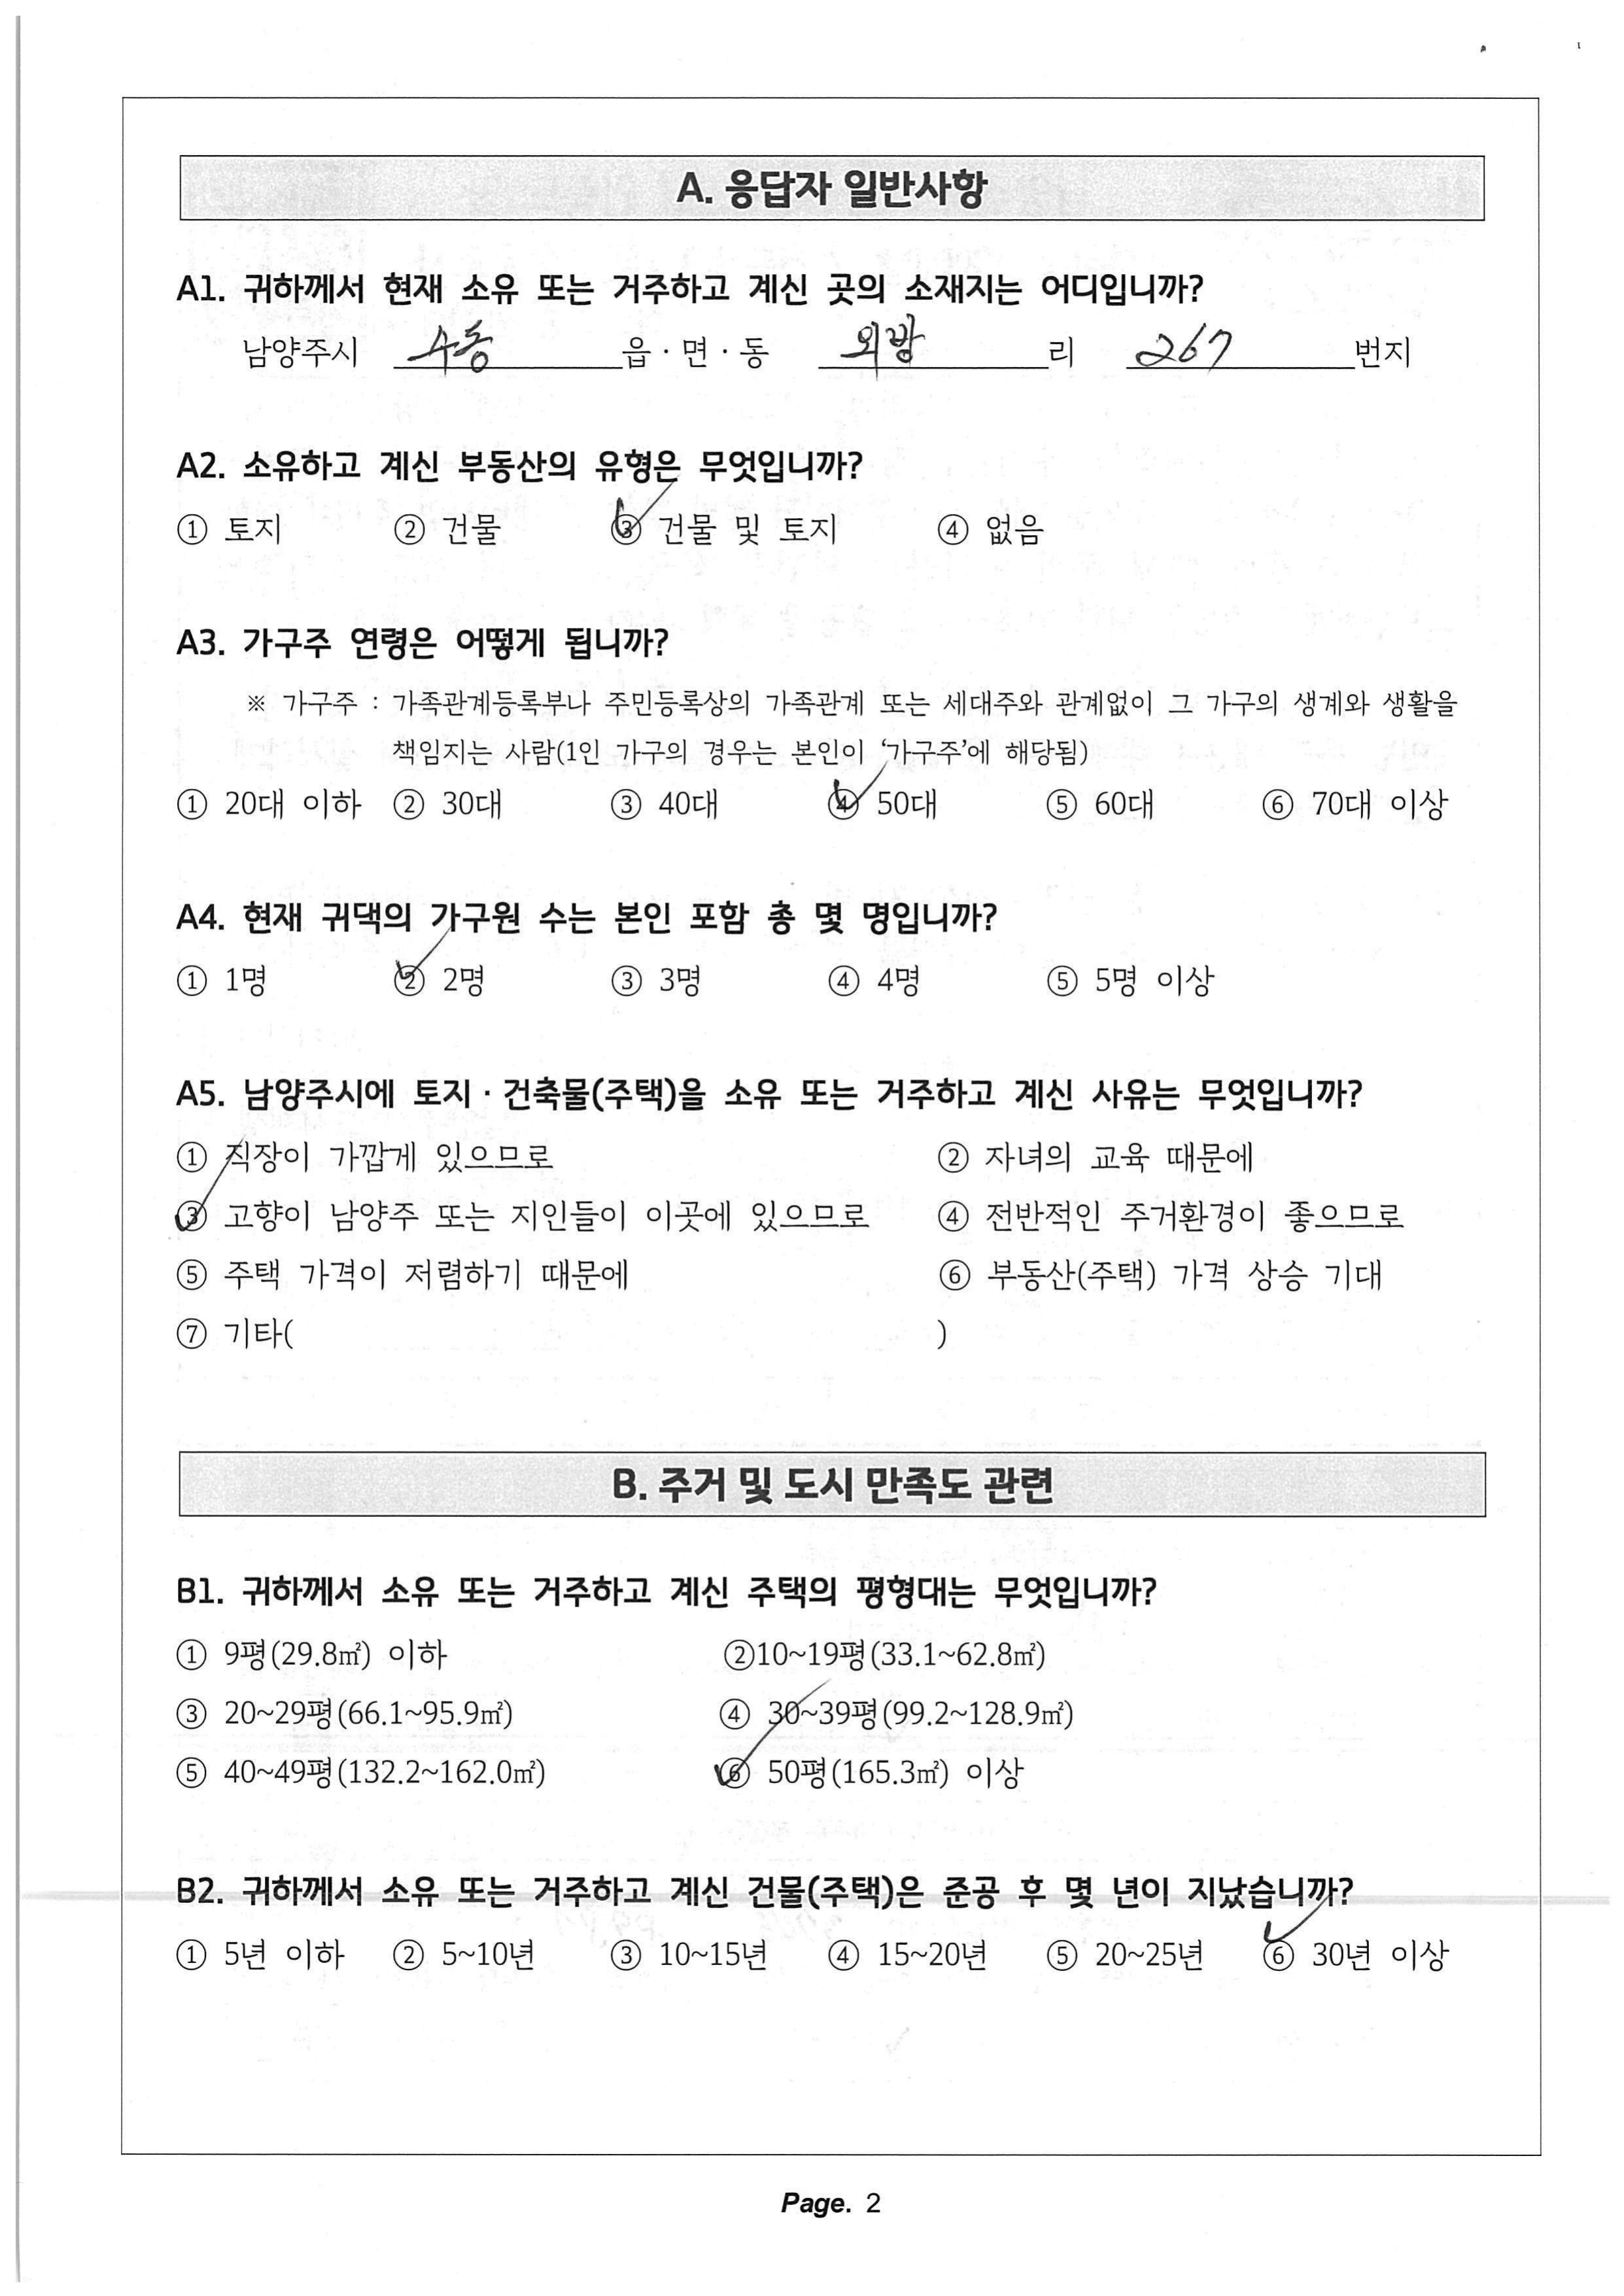 A. 응답자 일반사항
A1. 귀하께서 현재 소유 또는 거주하고 계신 곳의 소재지는 어디입니까?
남양주시 수동 읍·면·동 외방 리 267 번지
A2. 소유하고 계신 부동산의 유형은 무엇입니까?
① 토지 ② 건물 ③ 건물 및 토지 ④ 없음
A3. 가구주 연령은 어떻게 됩니까?
※ 가구주 : 가족관계등록부나 주민등록상의 가족관계 또는 세대주와 관계없이 그 가구의 생계와 생활을
책임지는 사람(1인 가구의 경우는 본인이 ‘가구주’에 해당됨)
① 20대 이하 ② 30대 ③ 40대 ④ 50대 ⑤ 60대 ⑥ 70대 이상
A4. 현재 귀댁의 가구원 수는 본인 포함 총 몇 명입니까?
① 1명 ② 2명 ③ 3명 ④ 4명 ⑤ 5명 이상
A5. 남양주시에 토지·건축물(주택)을 소유 또는 거주하고 계신 사유는 무엇입니까?
① 직장이 가깝게 있으므로 ② 자녀의 교육 때문에
③ 고향이 남양주 또는 지인들이 이곳에 있으므로 ④ 전반적인 주거환경이 좋으므로
⑤ 주택 가격이 저렴하기 때문에 ⑥ 부동산(주택) 가격 상승 기대
⑦ 기타( )
B. 주거 및 도시 만족도 관련
B1. 귀하께서 소유 또는 거주하고 계신 주택의 평형대는 무엇입니까?
① 9평(29.8㎡) 이하 ②10~19평(33.1~62.8㎡)
③ 20~29평(66.1~95.9㎡) ④ 30~39평(99.2~128.9㎡)
⑤ 40~49평(132.2~162.0㎡) ⑥ 50평(165.3㎡) 이상
B2. 귀하께서 소유 또는 거주하고 계신 건물(주택)은 준공 후 몇 년이 지났습니까?
① 5년 이하 ② 5~10년 ③ 10~15년 ④ 15~20년 ⑤ 20~25년 ⑥ 30년 이상
Page. 2